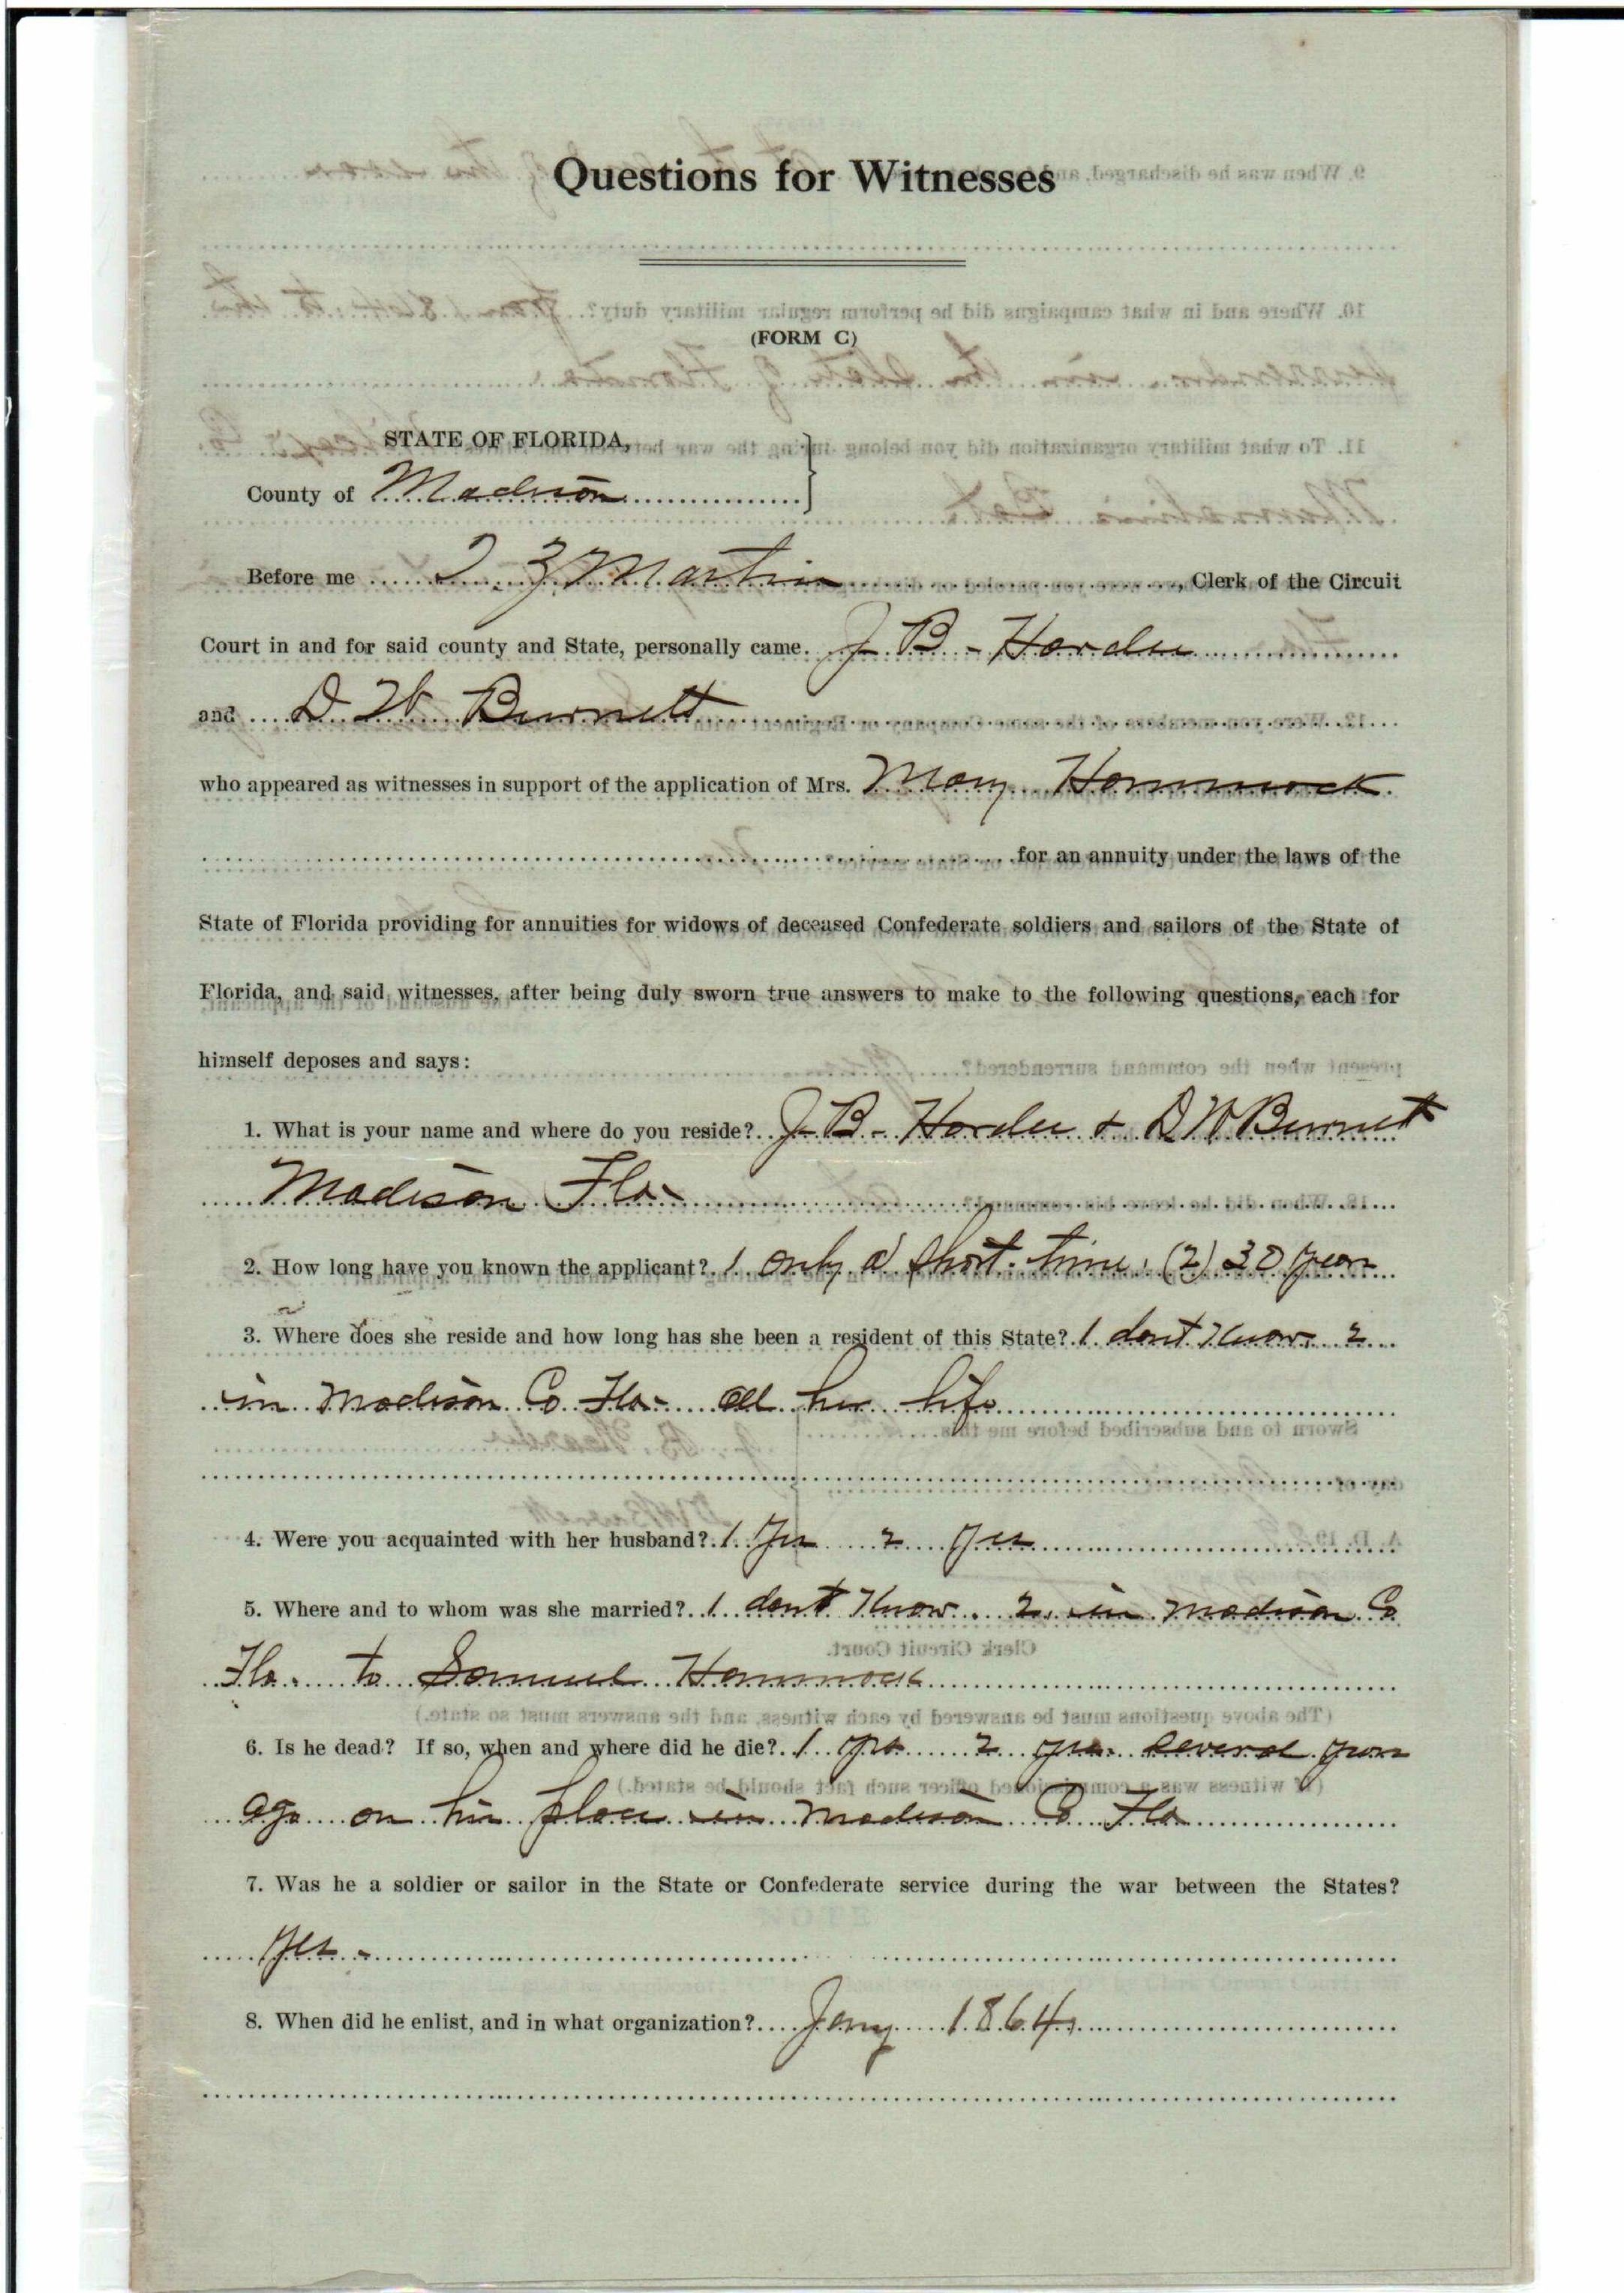 Questions for Witnesses
(FORM C)
STATE OF FLORIDA,
County of Madison
Before me T Z Martin, Clerk of the Circuit
Court in and for said county and State, personally came J B - Harden
and D W Burnett
who appeared as witnesses in support of the application of Mrs. Mary Hammock
for an annuity under the laws of the
State of Florida providing for annuities for widows of deceased Confederate soldiers and sailors of the State of
Florida, and said witnesses, after being duly sworn true answers to make to the following questions, each for
himself deposes and says:
1. What is your name and where do you reside? J B - Harden & D W Burnett
Madison Fla-
2. How long have you known the applicant? 1 only a short time, (2) 30 years
3. Where does she reside and how long has she been a resident of this State? 1 dont Know. 2
in Madison Co Fla- all her life
4. Were you acquainted with her husband? 1 yes 2 yes
5. Where and to whom was she married? 1 dont Know. 2. in Madison Co
Fla. to Samuel Hammock
6. Is he dead? If so, when and where did he die? 1 yes 2 yes. several years
ago on his place in Madison Co Fla
7. Was he a soldier or sailor in the State or Confederate service during the war between the States?
yes -
8. When did he enlist, and in what organization? Jany 1864.